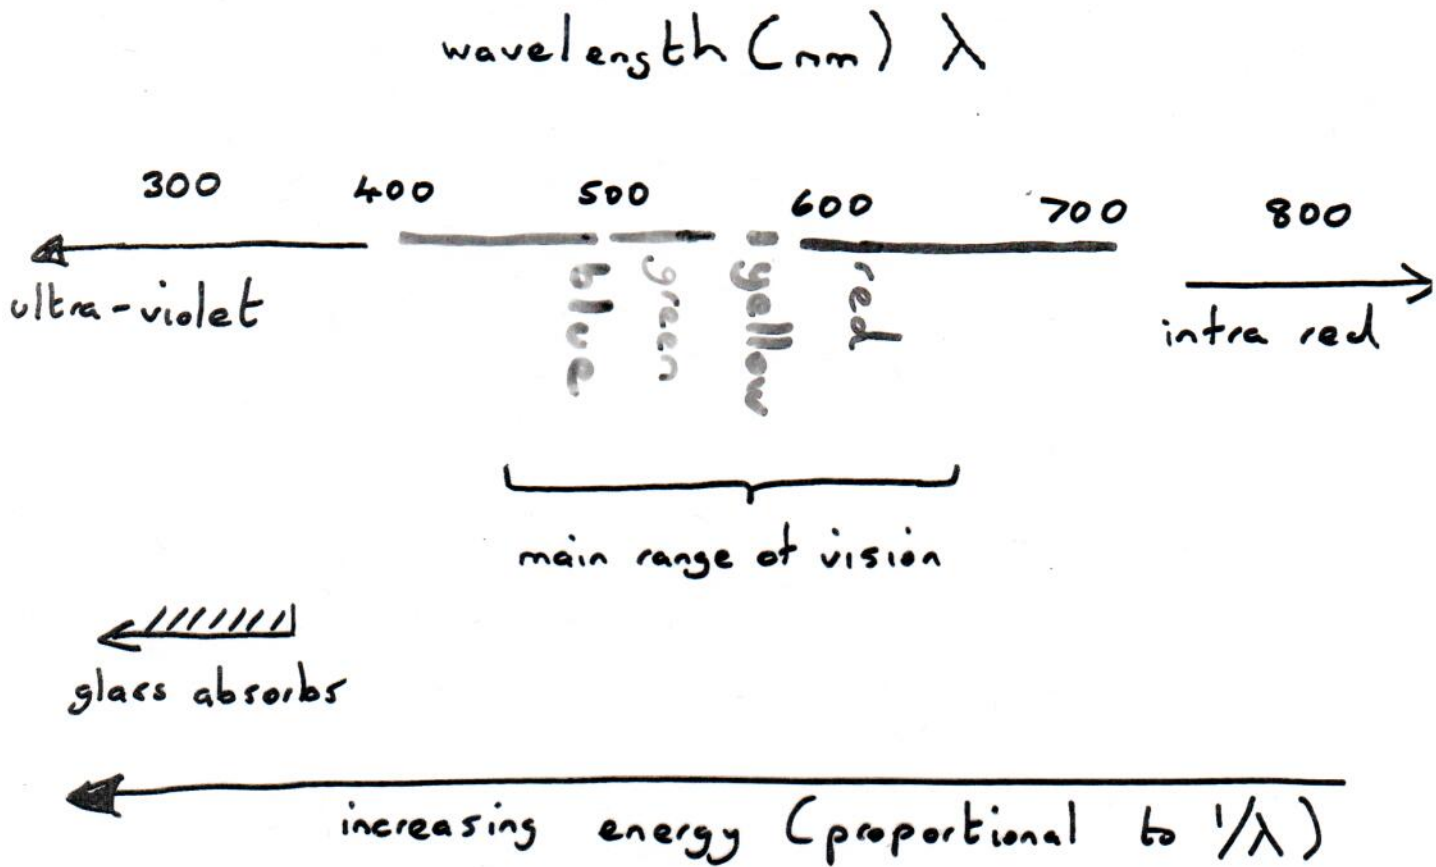 wavelength (nm) λ
300 400 500 600 700 800
ultra-violet
blue
green
yellow
red
infra red
main range of vision
glass absorbs
increasing energy (proportional to 1/λ)